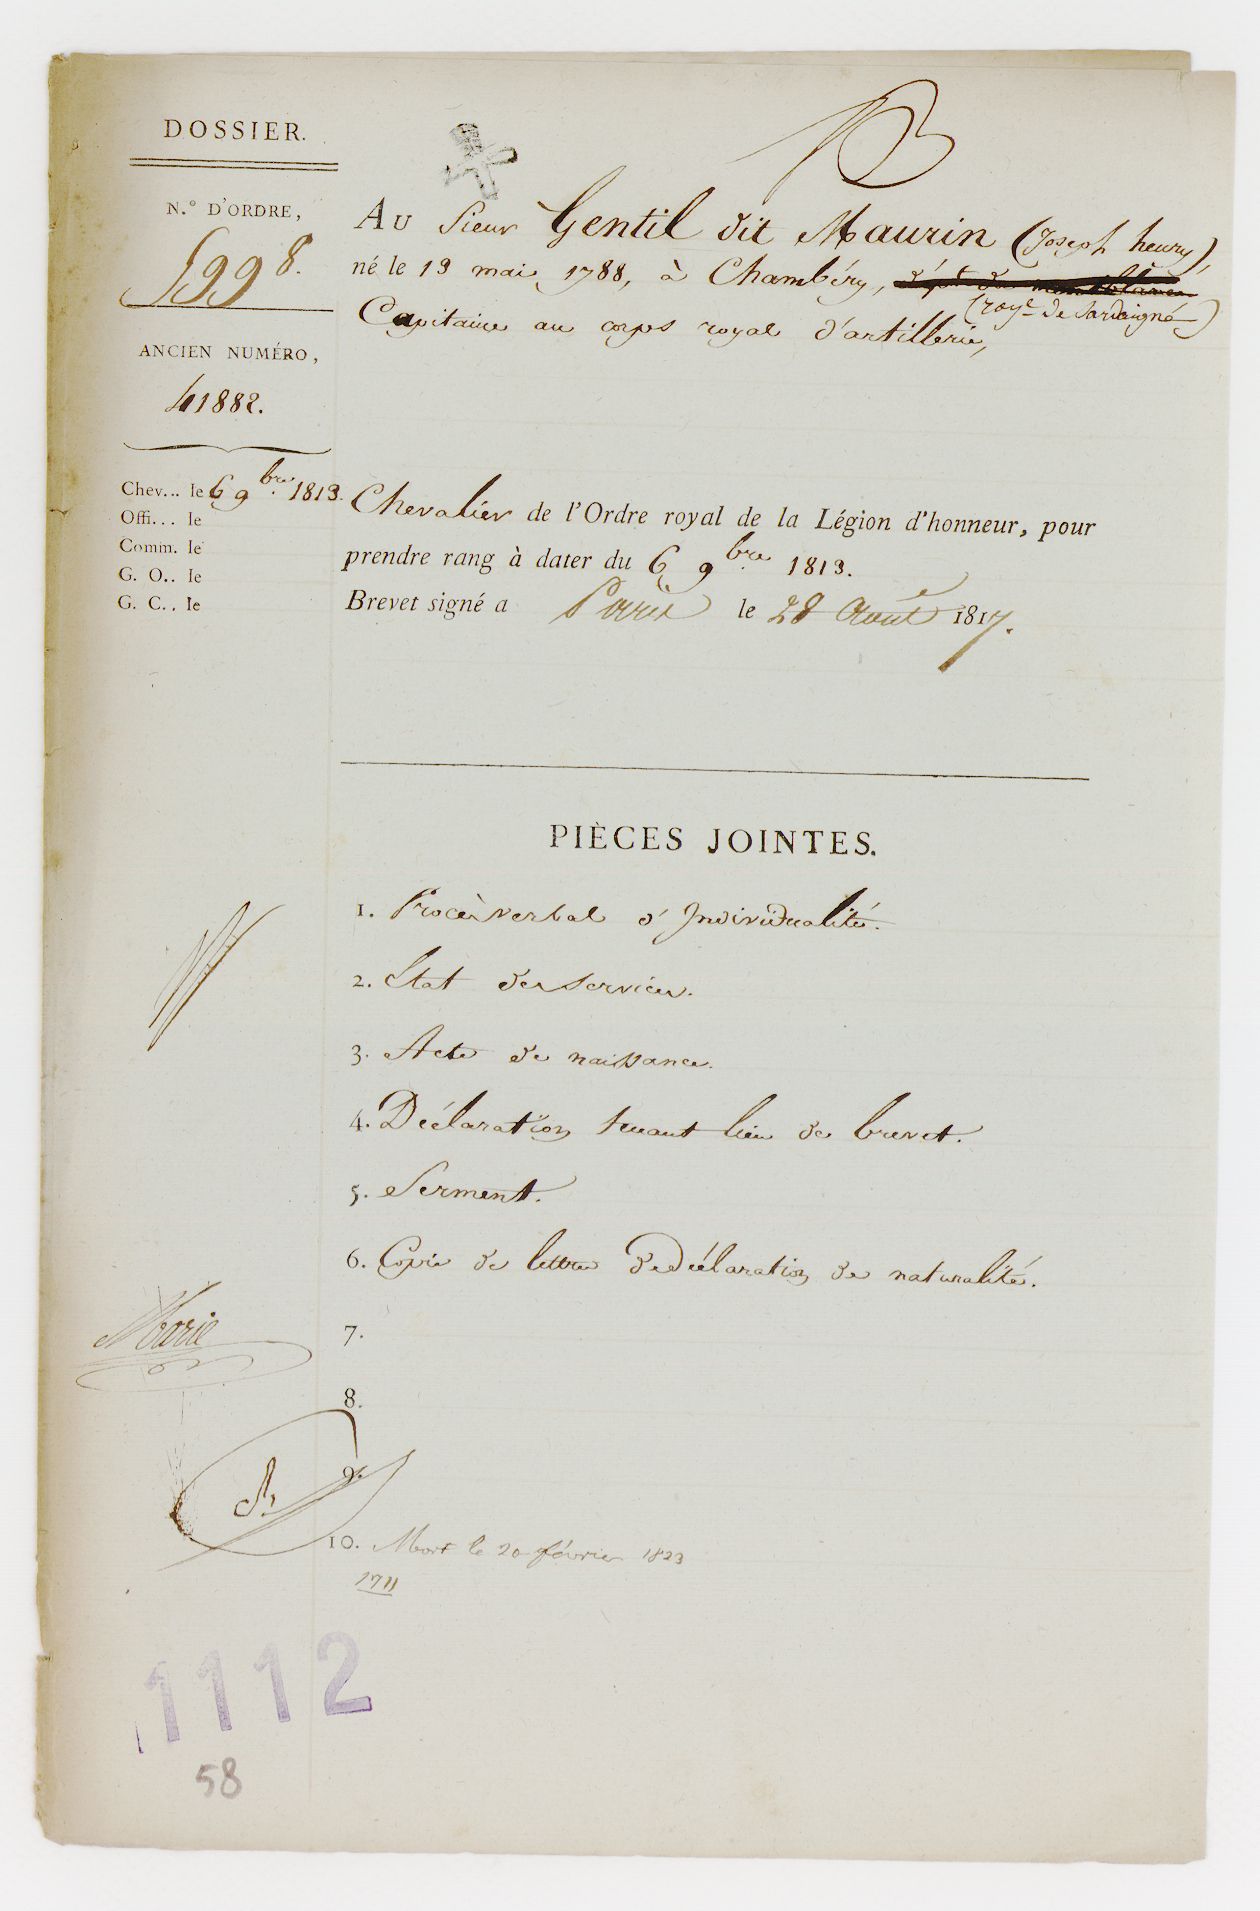 DOSSIER.
N.° D'ORDRE,
5998.
ANCIEN NUMÉRO,
41882.
Chev... le 6 9bre 1813.
Offi... le
Comm. le
G. O.. le
G. C.. le
AU Sieur Gentil dit Maurin (Joseph henry),
né le 19 mai 1788, à Chambéry, dépt du
(roye de Sardaigne)
Capitaine au corps royal d'artillerie,
Chevalier de l'Ordre royal de la Légion d'honneur, pour
prendre rang à dater du 6 9bre 1813.
Brevet signé a Paris le 28 Août 1817.
PIÈCES JOINTES.
1. Procès verbal d'Individualité.
2. Etat des services.
3. Acte de naissance.
4. Déclaration tenant lieu de brevet.
5. Serment.
6. Copie de lettres de déclaration de naturalité.
7.
8.
9.
10. Mort le 20 février 1823
1711
Marie
1112
58